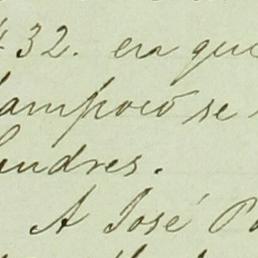 432. en que
tampoco se
Londres.
A José